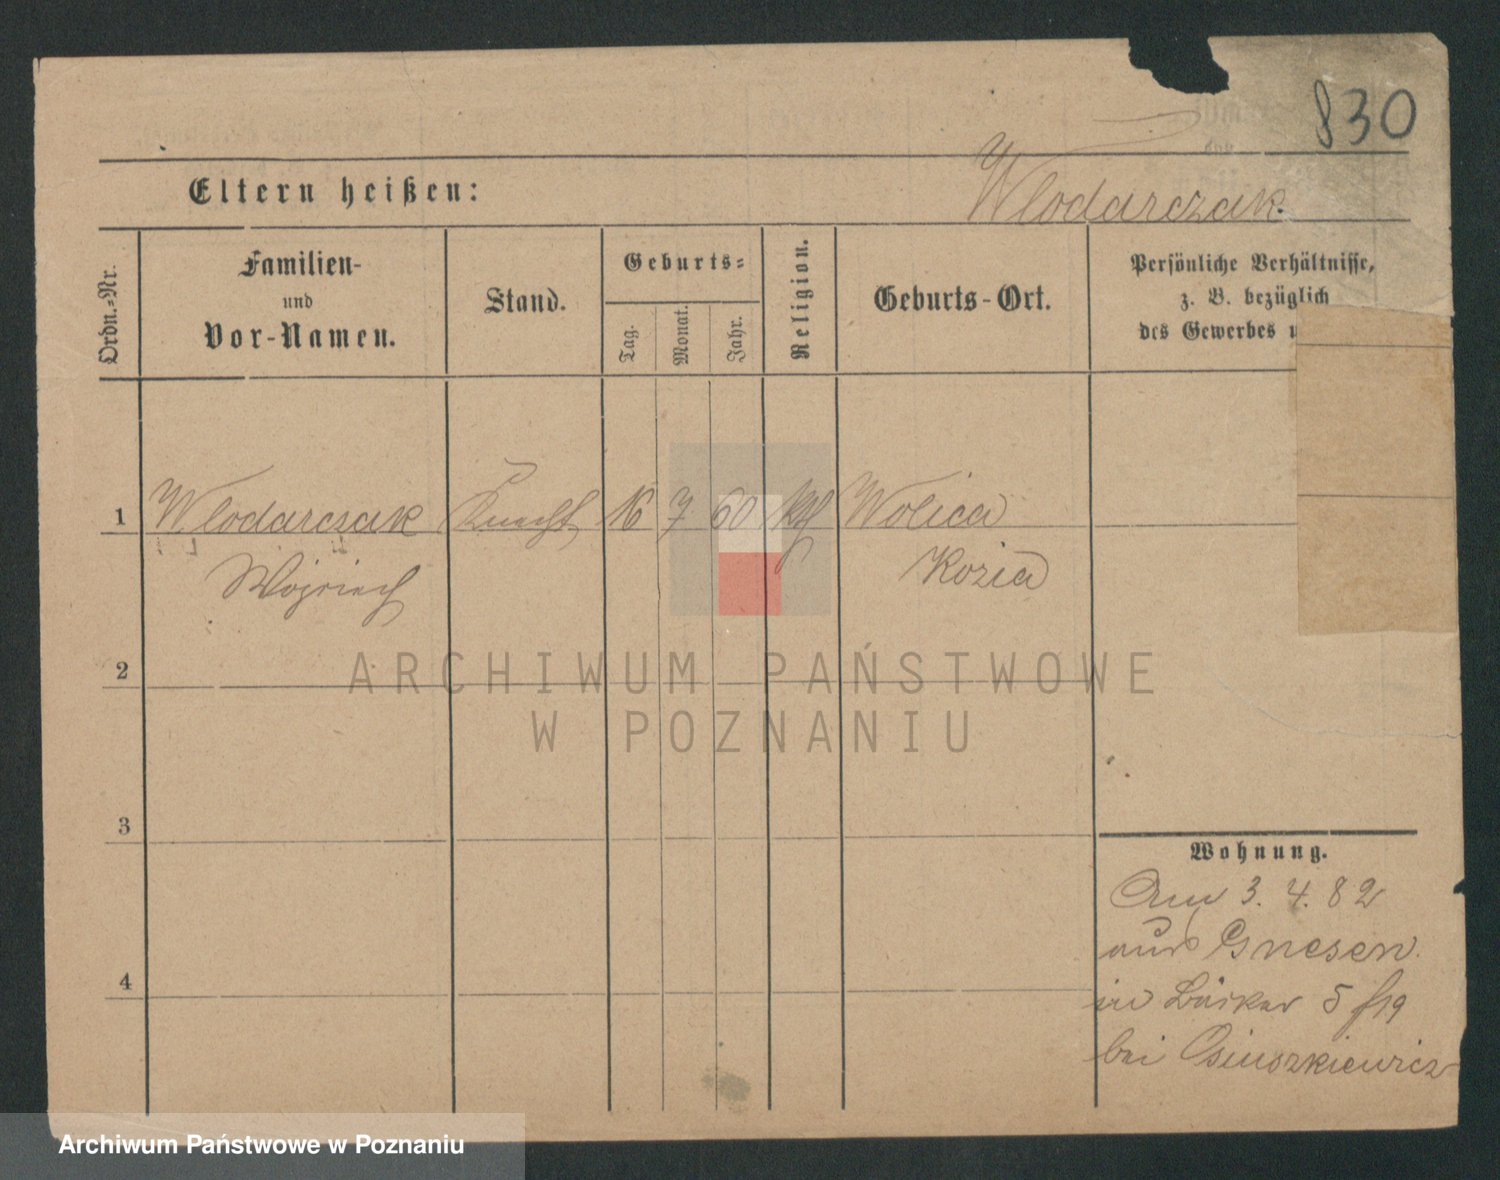 830
Eltern heißen:
Wlodarczak
Ordn.-Nr.
Familien-
und
Vor-Namen.
Stand.
Geburts-
Tag.
Monat.
Jahr.
Religion.
Geburts-Ort.
Persönliche Verhältnisse,
z. B. bezüglich
des Gewerbes u
1 Wlodarczak Knecht 16 7 60 kth Wolica
Wojciech Kozia
2
3
4
Wohnung.
Am 3. 4. 82
aus Gnesen
in Bäcker 5
bei Osiuszkiewicz
ARCHIWUM PAŃSTWOWE
W POZNANIU
Archiwum Państwowe w Poznaniu